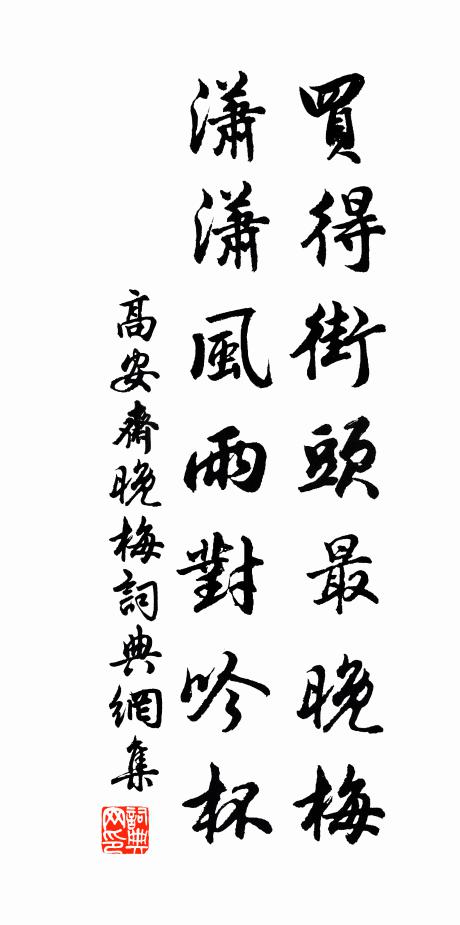 買得街頭最晚梅
瀟瀟風雨對吟杯
高安齋晚梅詞典網集
詞典网印